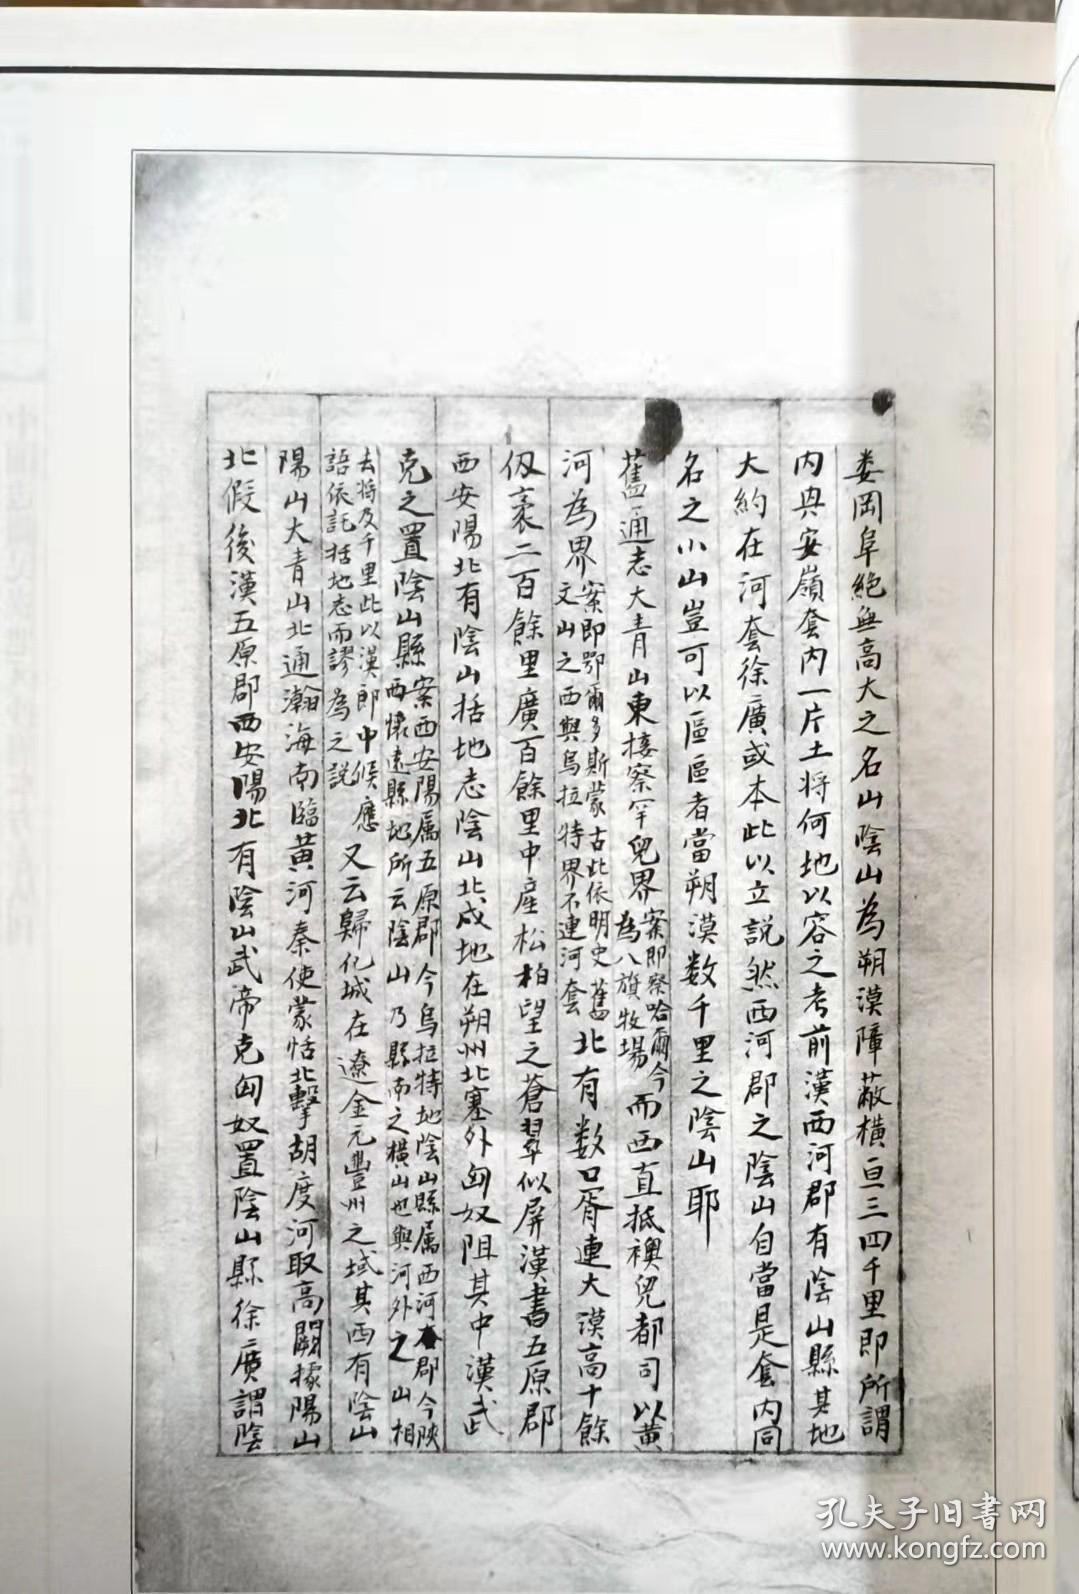 婁岡阜絕無高大之名山陰山為朔漠障蔽橫亘三四千里即所謂
内興安嶺套内一片土將何地以容之考前漢西河郡有陰山縣其地
大約在河套徐廣或本此以立説然西河郡之陰山自當是套内同
名之小山豈可以區區者當朔漠数千里之陰山耶
舊通志大青山東接察罕兒界案即察哈爾今為八旗牧場而西直抵襖兒都司以黃
河為界案即鄂爾多斯蒙古此依明史舊文山之西與烏拉特界不連河套北有数口胥連大漠高十餘
仭袤二百餘里廣百餘里中產松柏望之蒼翠似屏漢書五原郡
西安陽北有陰山括地志陰山北戍地在朔州北塞外匈奴阻其中漢武
克之置陰山縣案西安陽属五原郡今烏拉特地陰山縣属西河郡今陝西懷遠縣地所云陰山乃縣南之橫山也與河外之山相
去將及千里此以漢郎中候應語依託括地志而謬為之説又云歸化城在遼金元豐州之域其西有陰山
陽山大青山北通瀚海南臨黃河秦使蒙恬北擊胡度河取高闕據陽山
北假後漢五原郡西安陽北有陰山武帝克匈奴置陰山縣徐廣謂陰
孔夫子旧書网
www.kongfz.com